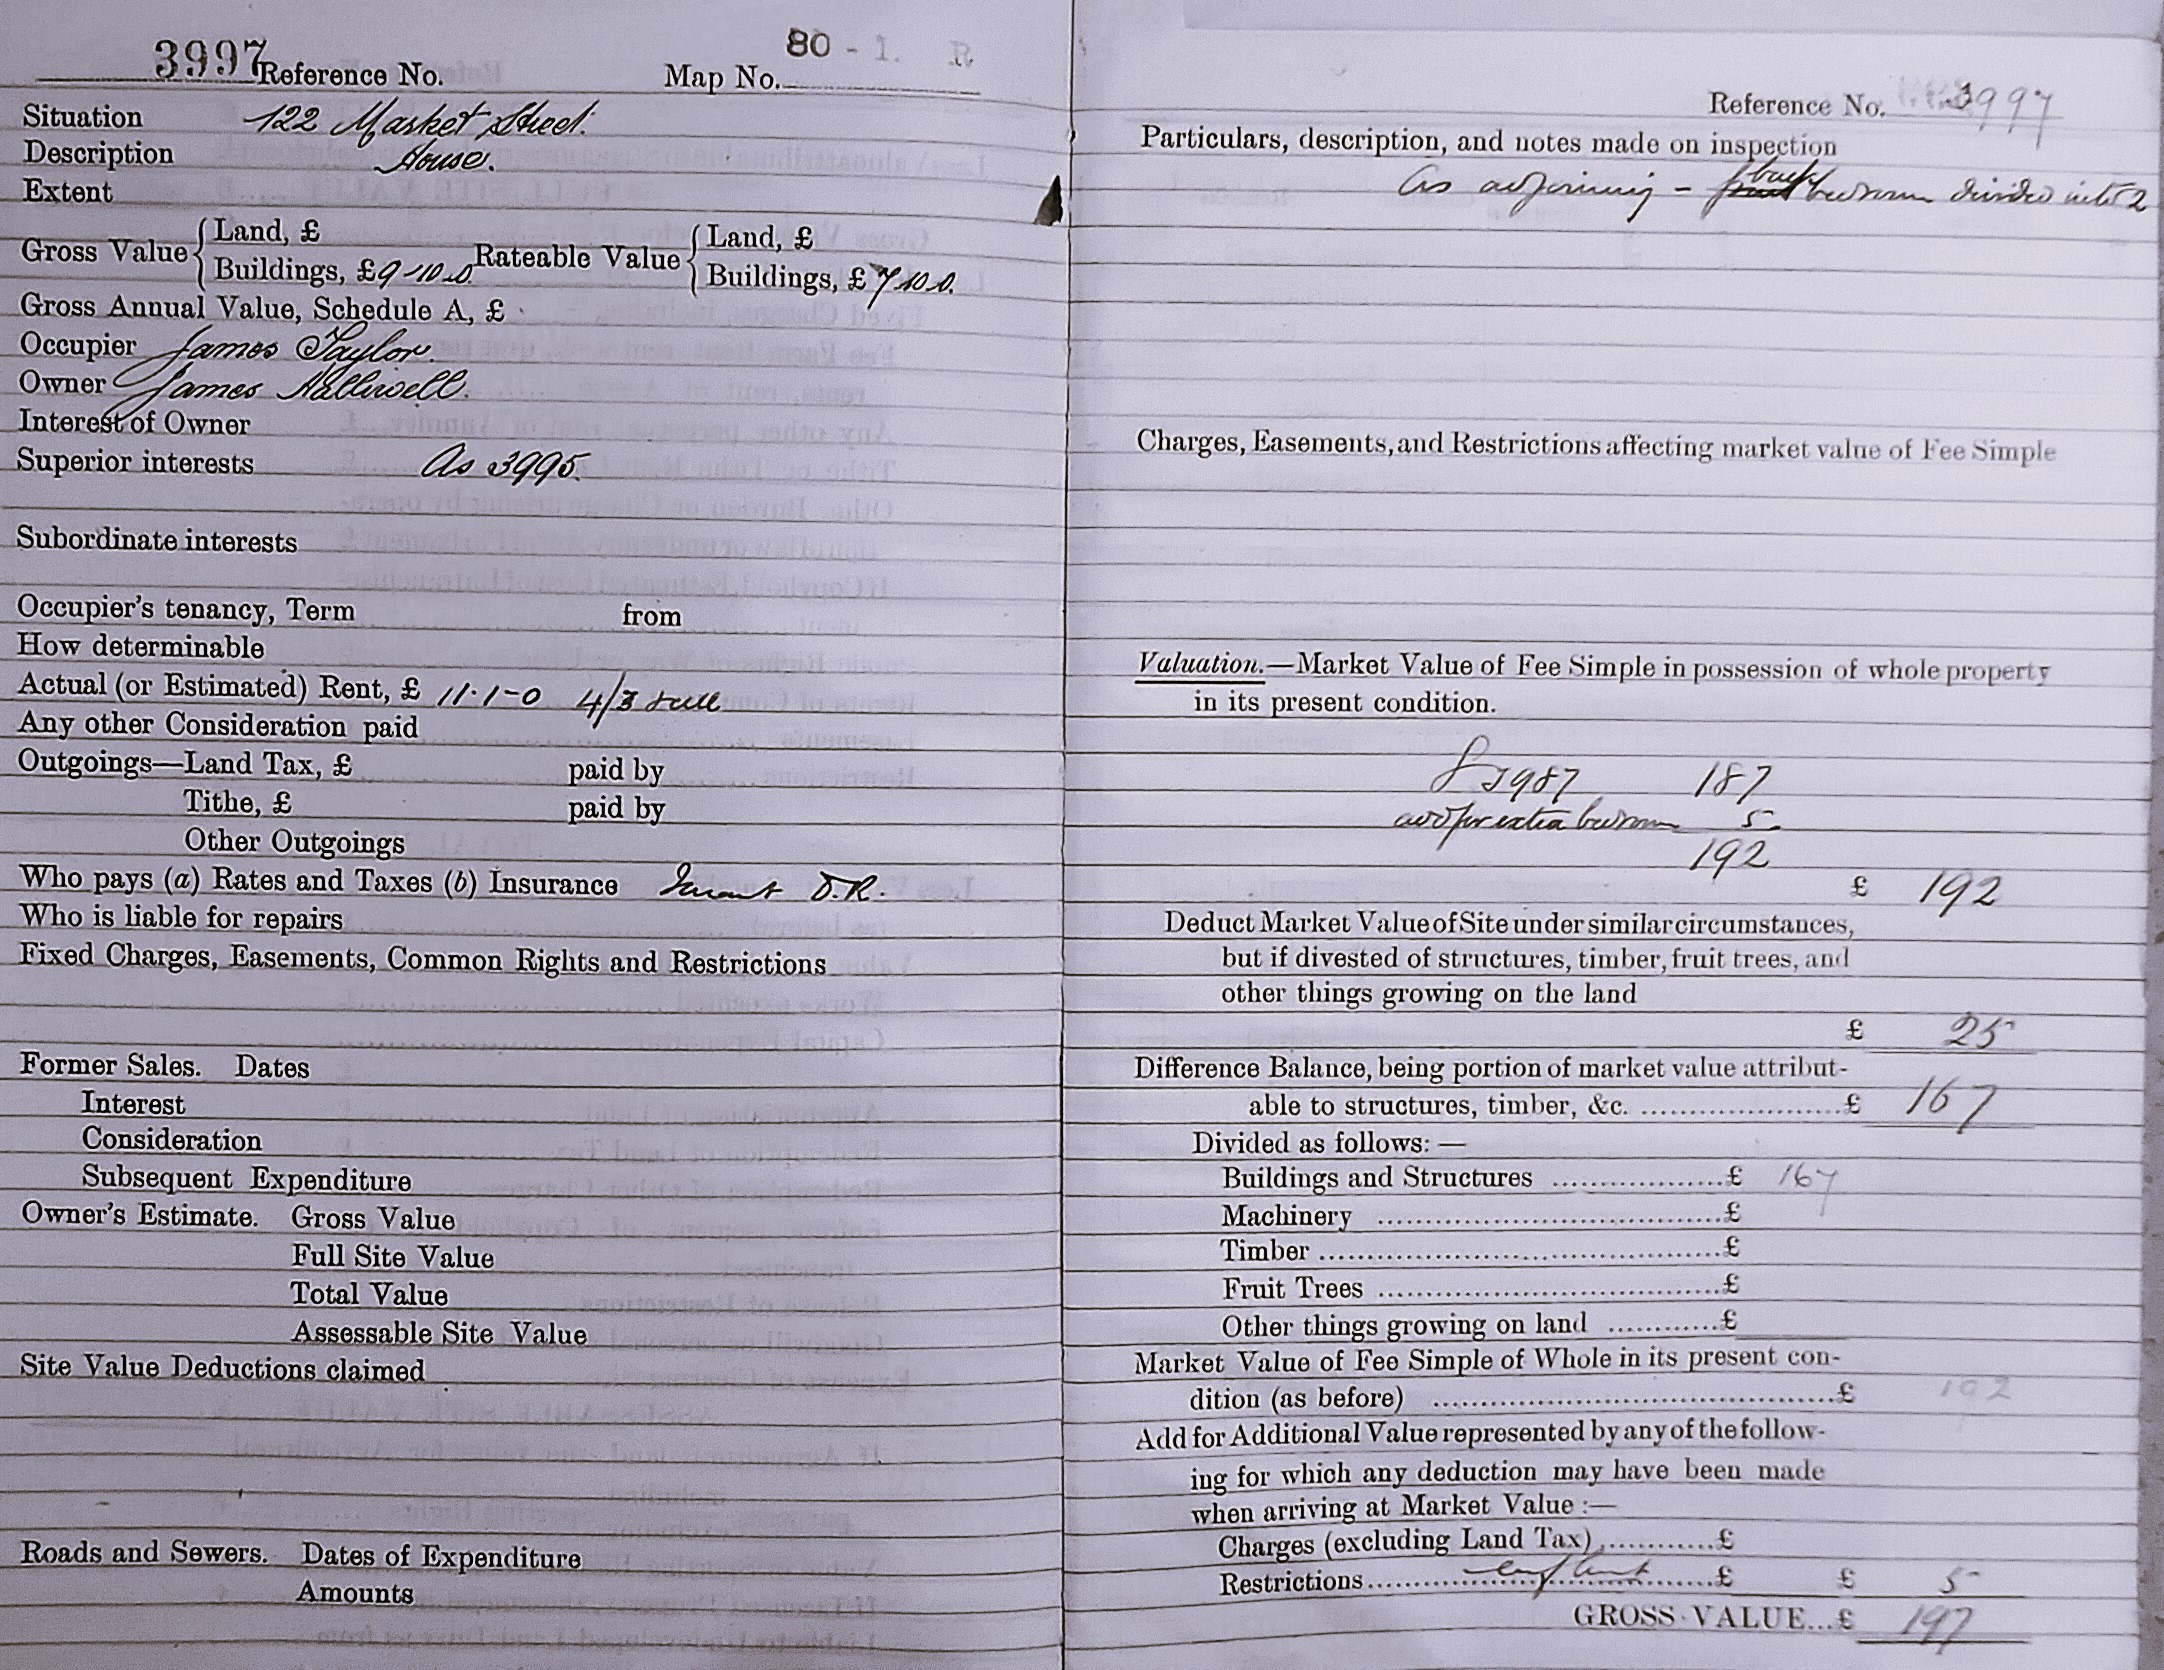 3997 Reference No. Map No. 80 - 1. R
Situation 122 Market Street.
Description House.
Extent
Gross Value { Land, £
Buildings, £ 9-10-0. Rateable Value { Land, £
Buildings, £ 7.10.0.
Gross Annual Value, Schedule A, £
Occupier James Taylor.
Owner James Halliwell.
Interest of Owner
Superior interests As 3995.
Subordinate interests
Occupier's tenancy, Term from
How determinable
Actual (or Estimated) Rent, £ 11.1-0 4/3
Any other Consideration paid
Outgoings—Land Tax, £ paid by
Tithe, £ paid by
Other Outgoings
Who pays (a) Rates and Taxes (b) Insurance Tenant D.R.
Who is liable for repairs
Fixed Charges, Easements, Common Rights and Restrictions
Former Sales. Dates
Interest
Consideration
Subsequent Expenditure
Owner's Estimate. Gross Value
Full Site Value
Total Value
Assessable Site Value
Site Value Deductions claimed
Roads and Sewers. Dates of Expenditure
Amounts
Reference No. 3997
Particulars, description, and notes made on inspection
As adjoining - back bedroom divided into 2
Charges, Easements, and Restrictions affecting market value of Fee Simple
Valuation.—Market Value of Fee Simple in possession of whole property
in its present condition.
3987 187
add for extra bedroom 5
192
£ 192
Deduct Market Value of Site under similar circumstances,
but if divested of structures, timber, fruit trees, and
other things growing on the land
£ 25
Difference Balance, being portion of market value attribut-
able to structures, timber, &c. £ 167
Divided as follows:—
Buildings and Structures £ 167
Machinery £
Timber £
Fruit Trees £
Other things growing on land £
Market Value of Fee Simple of Whole in its present con-
dition (as before) £ 192
Add for Additional Value represented by any of the follow-
ing for which any deduction may have been made
when arriving at Market Value :—
Charges (excluding Land Tax) £
Restrictions £ £ 5
GROSS VALUE... £ 197